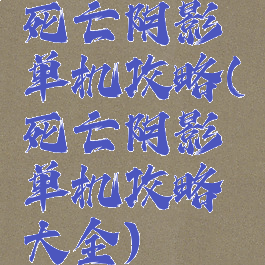 死亡阴影
单机攻略(
死亡阴影
单机攻略
大全)